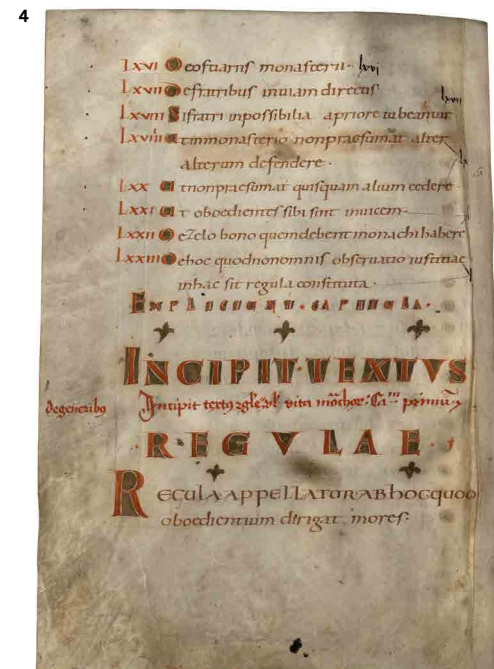 4
LXVI De ostiariis monasterii. lxvi
LXVII De fratribus in viam directis lxvii
LXVIII Si fratri inpossibilia a priore iubeantur
LXVIIII Ut in monasterio non praesumat alter
alterum defendere.
LXX Ut non praesumat quisquam alium cedere
LXXI Ut oboedientes sibi sint invicem
LXXII De zelo bono quem debent monachi habere
LXXIII De hoc quod non omnis observatio iustitiae
in hac sit regula constituta.
EXPLICIUNT CAPITULA.
INCIPIT TEXTUS
de generibus Incipit textus vita Ca primu
REGULAE
REGULA APPELLATUR AB HOC QUOD
oboedientium dirigat mores: